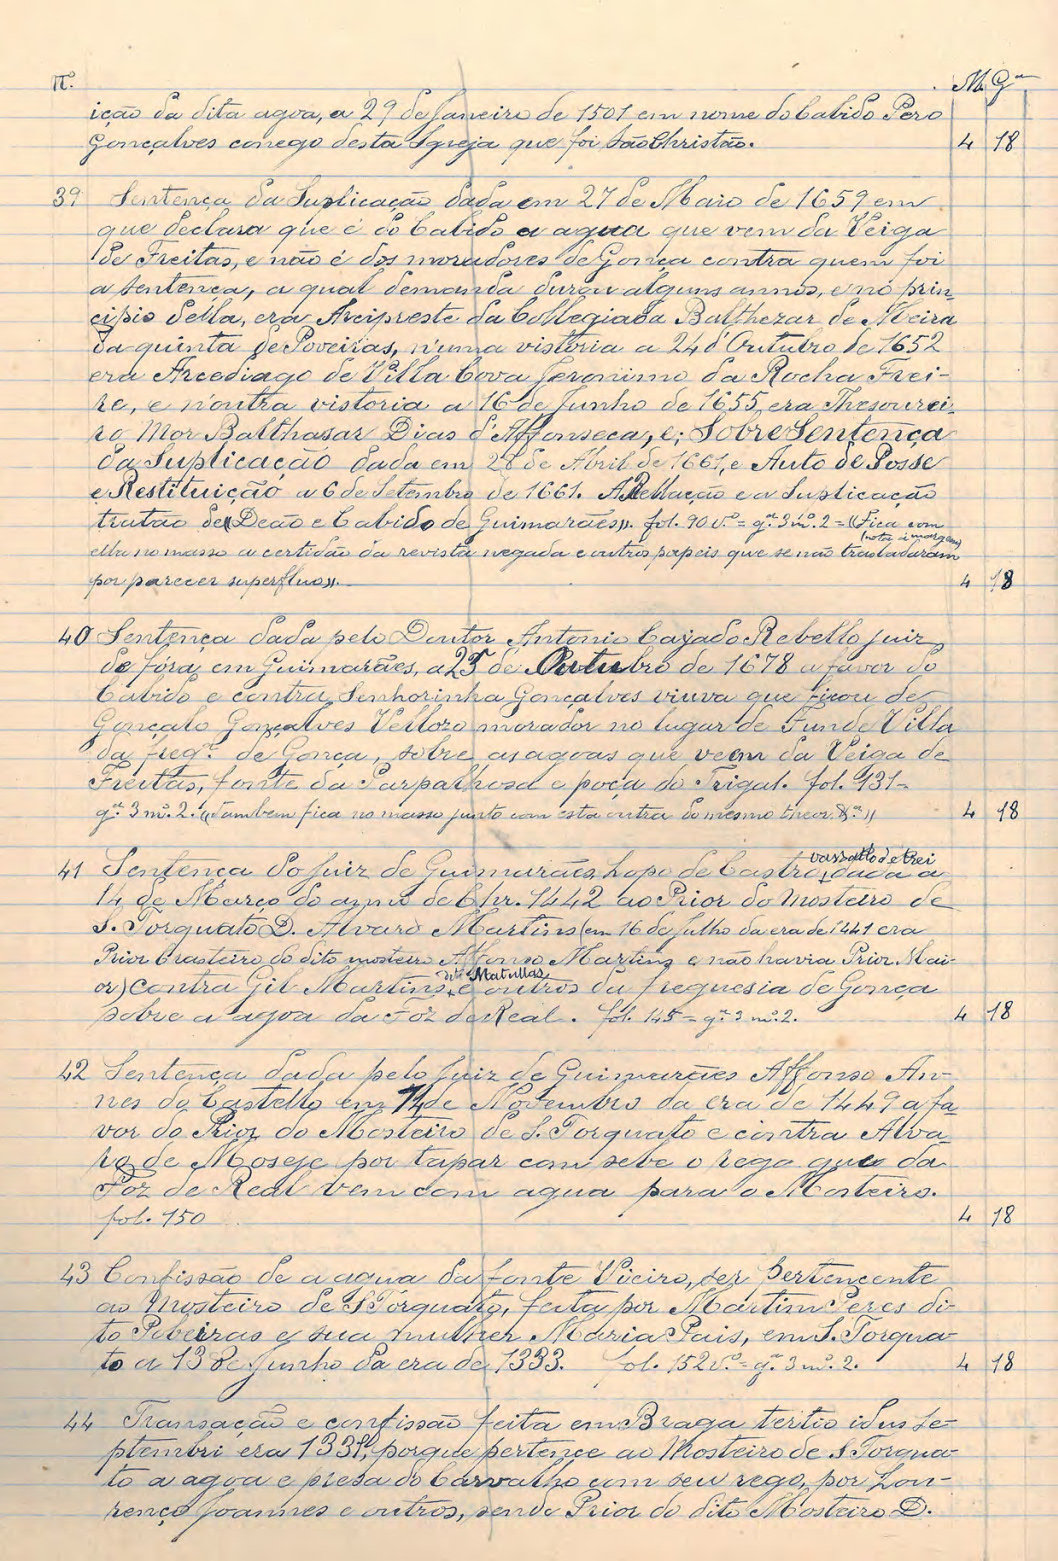 Nº. M. Gª
ição da dita agoa, a 29 de Janeiro de 1501 em nome do Cabido Pero
Gonçalves conego desta Igreja que foi são Christão. 4 18
39 Sentença da Suplicação dada em 27 de Maio de 1659 em
que declara que é do Cabido a agua que vem da Veiga
de Freitas, e não é dos moradores de Gonça contra quem foi
a sentença, a qual demanda durou alguns annos, e no prin-
cipio della, era Arcipreste da Collegiada Balthezar de Meira
da quinta de Poveiras, n'uma vistoria a 24 d'Outubro de 1652
era Arcediago de Villa Cova Jeronimo da Rocha Frei-
re, e n'outra vistoria a 16 de Junho de 1655 era Thesourei-
ro Mor Balthasar Dias d'Affonseca, e; Sobre Sentença
da Suplicação dada em 28 de Abril de 1661, e Auto de Posse
e Restituição a 6 de Setembro de 1661. A Rellação e a Suplicação
tratão de «Deão e Cabido de Guimarães». fol. 90 vº = gª. 3 mº. 2 = «Fica com
(nota á margem)
ella no masso a certidão da revista negada e outros papeis que se não trasladaram
por parecer superfluo». 4 18
40 Sentença dada pelo Doutor Antonio Cajado Rebello juiz
de fóra em Guimarães, a 25 de Outubro de 1678 a favor do
Cabido e contra Senhorinha Gonçalves viuva que ficou de
Gonçalo Gonçalves Vellozo morador no lugar de Fundo Villa
da fregª. de Gonça, sobre as agoas que veem da Veiga de
Freitas, fonte da Parpalhosa e poça do Trigal. fol. 131 -
gª. 3 mº. 2. «Tambem fica no masso junto com esta outra do mesmo theor &ª.» 4 18
vassallo del rei
41 Sentença do Juiz de Guimarães, Lopo de Castro, dada a
14 de Março do anno de Chr. 1442 ao Prior do Mosteiro de
S. Torquato D. Alvaro Martins (em 16 de Julho da era de 1441 era
Prior Crasteiro do dito mosteiro Affonso Martins e não havia Prior Mai-
dito Matullas
or) contra Gil Martins, e outros da freguesia de Gonça
sobre a agoa da Foz de Real. fol. 145 = gª. 3 mº. 2. 4 18
42 Sentença dada pelo Juiz de Guimarães Affonso An-
nes do Castello em 14 de Novembro da era de 1449 a fa-
vor do Prior do Mosteiro de S. Torquato e contra Alva-
ro de Moseje por tapar com sebe o rego que da
Foz de Real vem com agua para o Mosteiro.
fol. 150 4 18
43 Confissão de a agua da fonte Vieiro, ser pertencente
ao Mosteiro de S Torquato, feita por Martim Peres di-
to Pobeiras e sua mulher Maria Pais, em S. Torqua-
to a 13 de Junho da era de 1333. fol. 152 vº. = gª. 3 mº. 2. 4 18
44 Transação e confissão feita em Braga tertio idus Se-
ptembri era 1338, porque pertence ao Mosteiro de S Torqua-
to a agoa e presa do Carvalho com seu rego, por Lou-
renço Joannes e outros, sendo Prior do dito Mosteiro D.